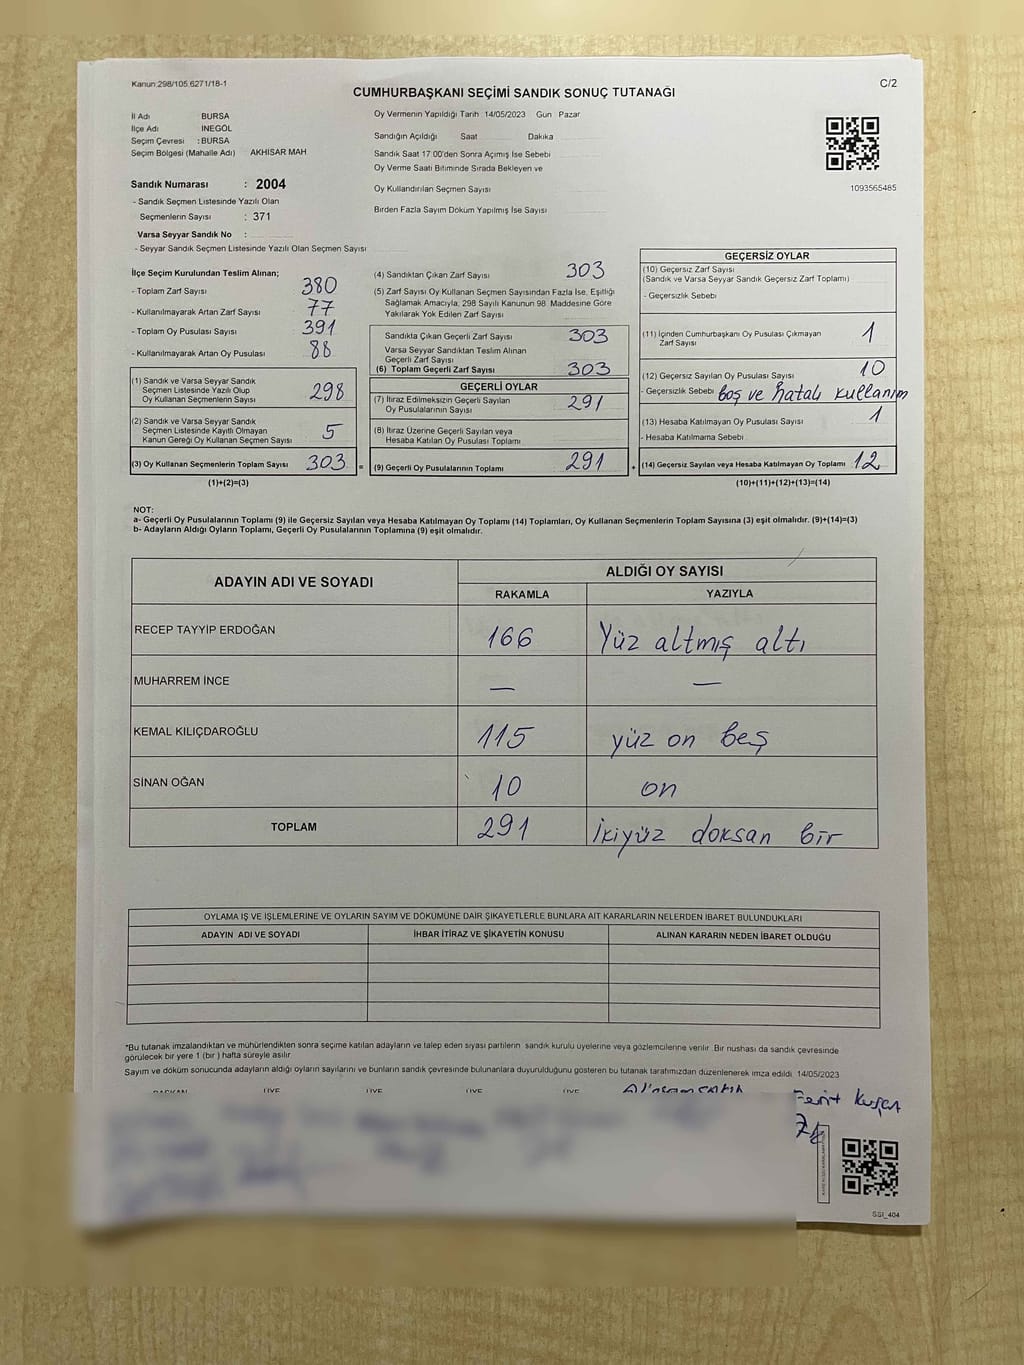 Kanun:298/105 6271/18-1
C/2
CUMHURBAŞKANI SEÇİMİ SANDIK SONUÇ TUTANAĞI
İl Adı BURSA
İlçe Adı INEGÖL
Seçim Çevresi : BURSA
Seçim Bölgesi (Mahalle Adı) AKHİSAR MAH
Sandık Numarası : 2004
- Sandık Seçmen Listesinde Yazılı Olan
Seçmenlerin Sayısı : 371
Varsa Seyyar Sandık No :
- Seyyar Sandık Seçmen Listesinde Yazılı Olan Seçmen Sayısı
Oy Vermenin Yapıldığı Tarih 14/05/2023 Gün Pazar
Sandığın Açıldığı Saat Dakika
Sandık Saat 17 00'den Sonra Açımış İse Sebebi
Oy Verme Saati Bitiminde Sırada Bekleyen ve
Oy Kullandırılan Seçmen Sayısı
Birden Fazla Sayım Döküm Yapılmış İse Sayısı
1093565485
İlçe Seçim Kurulundan Teslim Alınan;
- Toplam Zarf Sayısı 380
- Kullanılmayarak Artan Zarf Sayısı 77
- Toplam Oy Pusulası Sayısı 391
- Kullanılmayarak Artan Oy Pusulası 88
(1) Sandık ve Varsa Seyyar Sandık
Seçmen Listesinde Yazılı Olup
Oy Kullanan Seçmenlerin Sayısı 298
(2) Sandık ve Varsa Seyyar Sandık
Seçmen Listesinde Kayıtlı Olmayan
Kanun Gereği Oy Kullanan Seçmen Sayısı 5
(3) Oy Kullanan Seçmenlerin Toplam Sayısı 303 =
(1)+(2)=(3)
(4) Sandıktan Çıkan Zarf Sayısı 303
(5) Zarf Sayısı Oy Kullanan Seçmen Sayısından Fazla İse, Eşitliği
Sağlamak Amacıyla, 298 Sayılı Kanunun 98 Maddesine Göre
Yakılarak Yok Edilen Zarf Sayısı
Sandıkta Çıkan Geçerli Zarf Sayısı 303
Varsa Seyyar Sandıktan Teslim Alınan
Geçerli Zarf Sayısı
(6) Toplam Geçerli Zarf Sayısı 303
GEÇERLİ OYLAR
(7) İtiraz Edilmeksizin Geçerli Sayılan
Oy Pusulalarının Sayısı 291
(8) İtiraz Üzerine Geçerli Sayılan veya
Hesaba Katılan Oy Pusulası Toplamı
(9) Geçerli Oy Pusulalarının Toplamı 291 +
GEÇERSİZ OYLAR
(10) Geçersiz Zarf Sayısı
(Sandık ve Varsa Seyyar Sandık Geçersiz Zarf Toplamı)
- Geçersizlik Sebebi
(11) İçinden Cumhurbaşkanı Oy Pusulası Çıkmayan
Zarf Sayısı 1
(12) Geçersiz Sayılan Oy Pusulası Sayısı 10
- Geçersizlik Sebebi boş ve hatalı kullanım
(13) Hesaba Katılmayan Oy Pusulası Sayısı 1
- Hesaba Katılmama Sebebi
(14) Geçersiz Sayılan veya Hesaba Katılmayan Oy Toplamı 12
(10)+(11)+(12)+(13)=(14)
NOT:
a- Geçerli Oy Pusulalarının Toplamı (9) ile Geçersiz Sayılan veya Hesaba Katılmayan Oy Toplamı (14) Toplamları, Oy Kullanan Seçmenlerin Toplam Sayısına (3) eşit olmalıdır. (9)+(14)=(3)
b- Adayların Aldığı Oyların Toplamı, Geçerli Oy Pusulalarının Toplamına (9) eşit olmalıdır.
ADAYIN ADI VE SOYADI
ALDIĞI OY SAYISI
RAKAMLA YAZIYLA
RECEP TAYYİP ERDOĞAN 166 Yüz altmış altı
MUHARREM İNCE — —
KEMAL KILIÇDAROĞLU 115 yüz on beş
SİNAN OĞAN 10 on
TOPLAM 291 İkiyüz doksan bir
OYLAMA İŞ VE İŞLEMLERİNE VE OYLARIN SAYIM VE DÖKÜMÜNE DAİR ŞİKAYETLERLE BUNLARA AİT KARARLARIN NELERDEN İBARET BULUNDUKLARI
ADAYIN ADI VE SOYADI İHBAR İTİRAZ VE ŞİKAYETİN KONUSU ALINAN KARARIN NEDEN İBARET OLDUĞU
*Bu tutanak imzalandıktan ve mühürlendikten sonra seçime katılan adayların ve talep eden siyasi partilerin sandık kurulu üyelerine veya gözlemcilerine verilir. Bir nushası da sandık çevresinde
görülecek bir yere 1 (bir ) hafta süreyle asılır
Sayım ve döküm sonucunda adayların aldığı oyların sayılarını ve bunların sandık çevresinde bulunanlara duyurulduğunu gösteren bu tutanak tarafımızdan düzenlenerek imza edildi. 14/05/2023
BAŞKAN ÜYE ÜYE ÜYE ÜYE
SSI_404